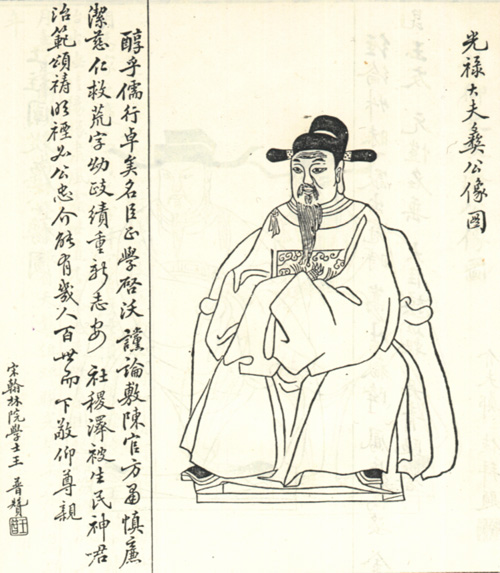 光禄大夫彝公像图
醇乎儒行卓矣名臣正學啓沃讜論敷陳官方慎廉
潔慈仁救荒字幼政績重新志安社稷澤被生民神君
治範頌禱明禋如公忠介能有幾人百世而下敬仰尊親
宋翰林院學士王普贊